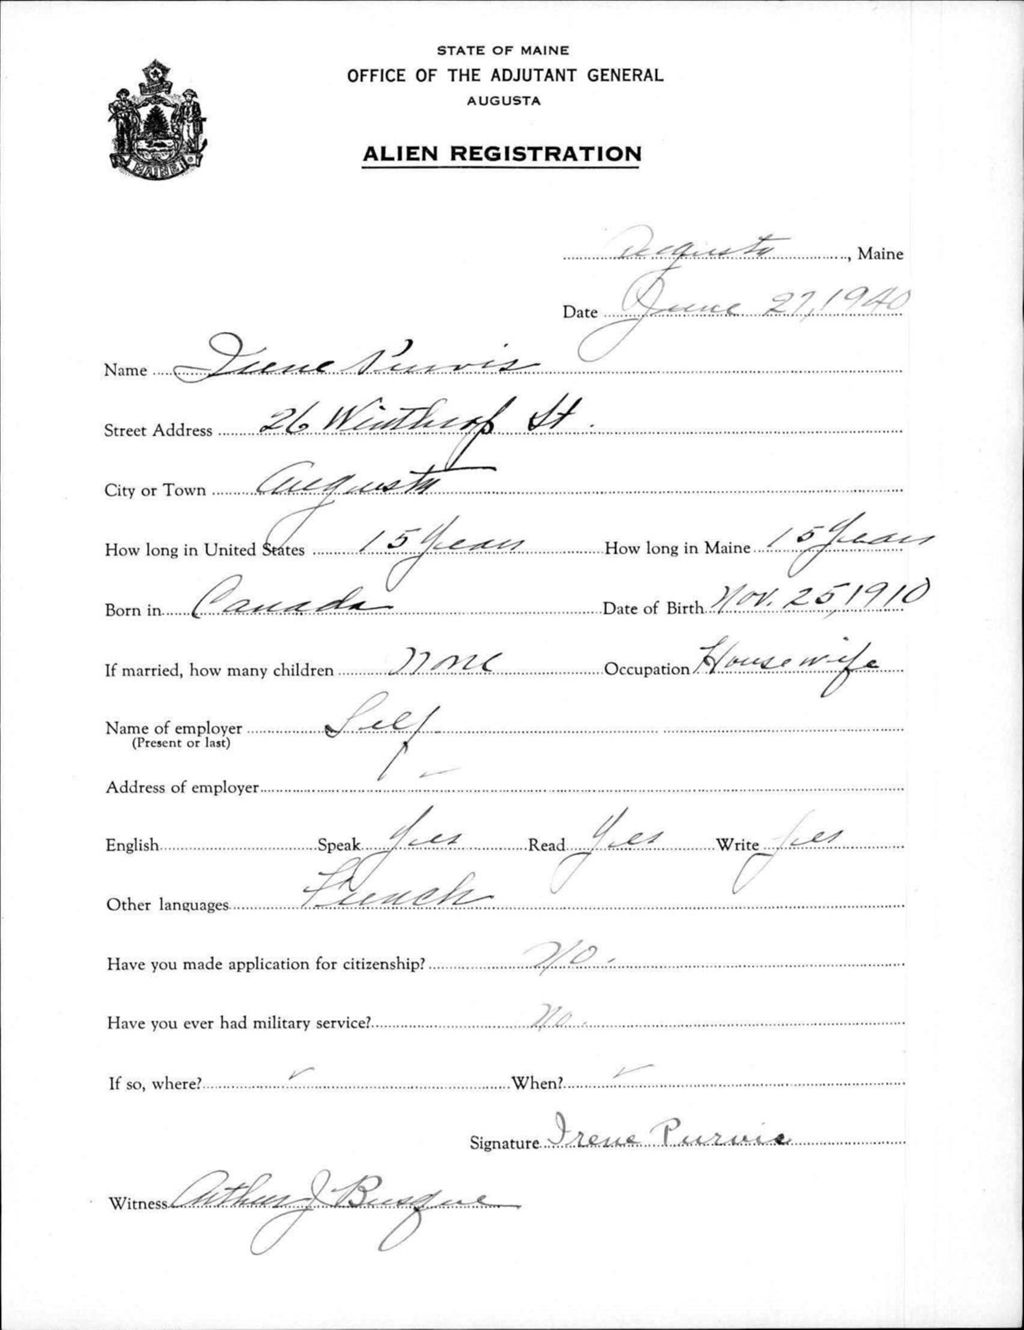 STATE OF MAINE
OFFICE OF THE ADJUTANT GENERAL
AUGUSTA
ALIEN REGISTRATION
MAINE
Augusta, Maine
Date June 27, 1940
Name Irene Purvis
Street Address 26 Winthrop St.
City or Town Augusta
How long in United States 15 Years How long in Maine 15 Years
Born in Canada Date of Birth Nov. 25, 1910
If married, how many children None Occupation Housewife
Name of employer Self
(Present or last)
Address of employer -
English Speak Yes Read Yes Write Yes
Other languages French
Have you made application for citizenship? No.
Have you ever had military service? No.
If so, where? ✓ When? ✓
Signature Irene Purvis
Witness Arthur J Busque